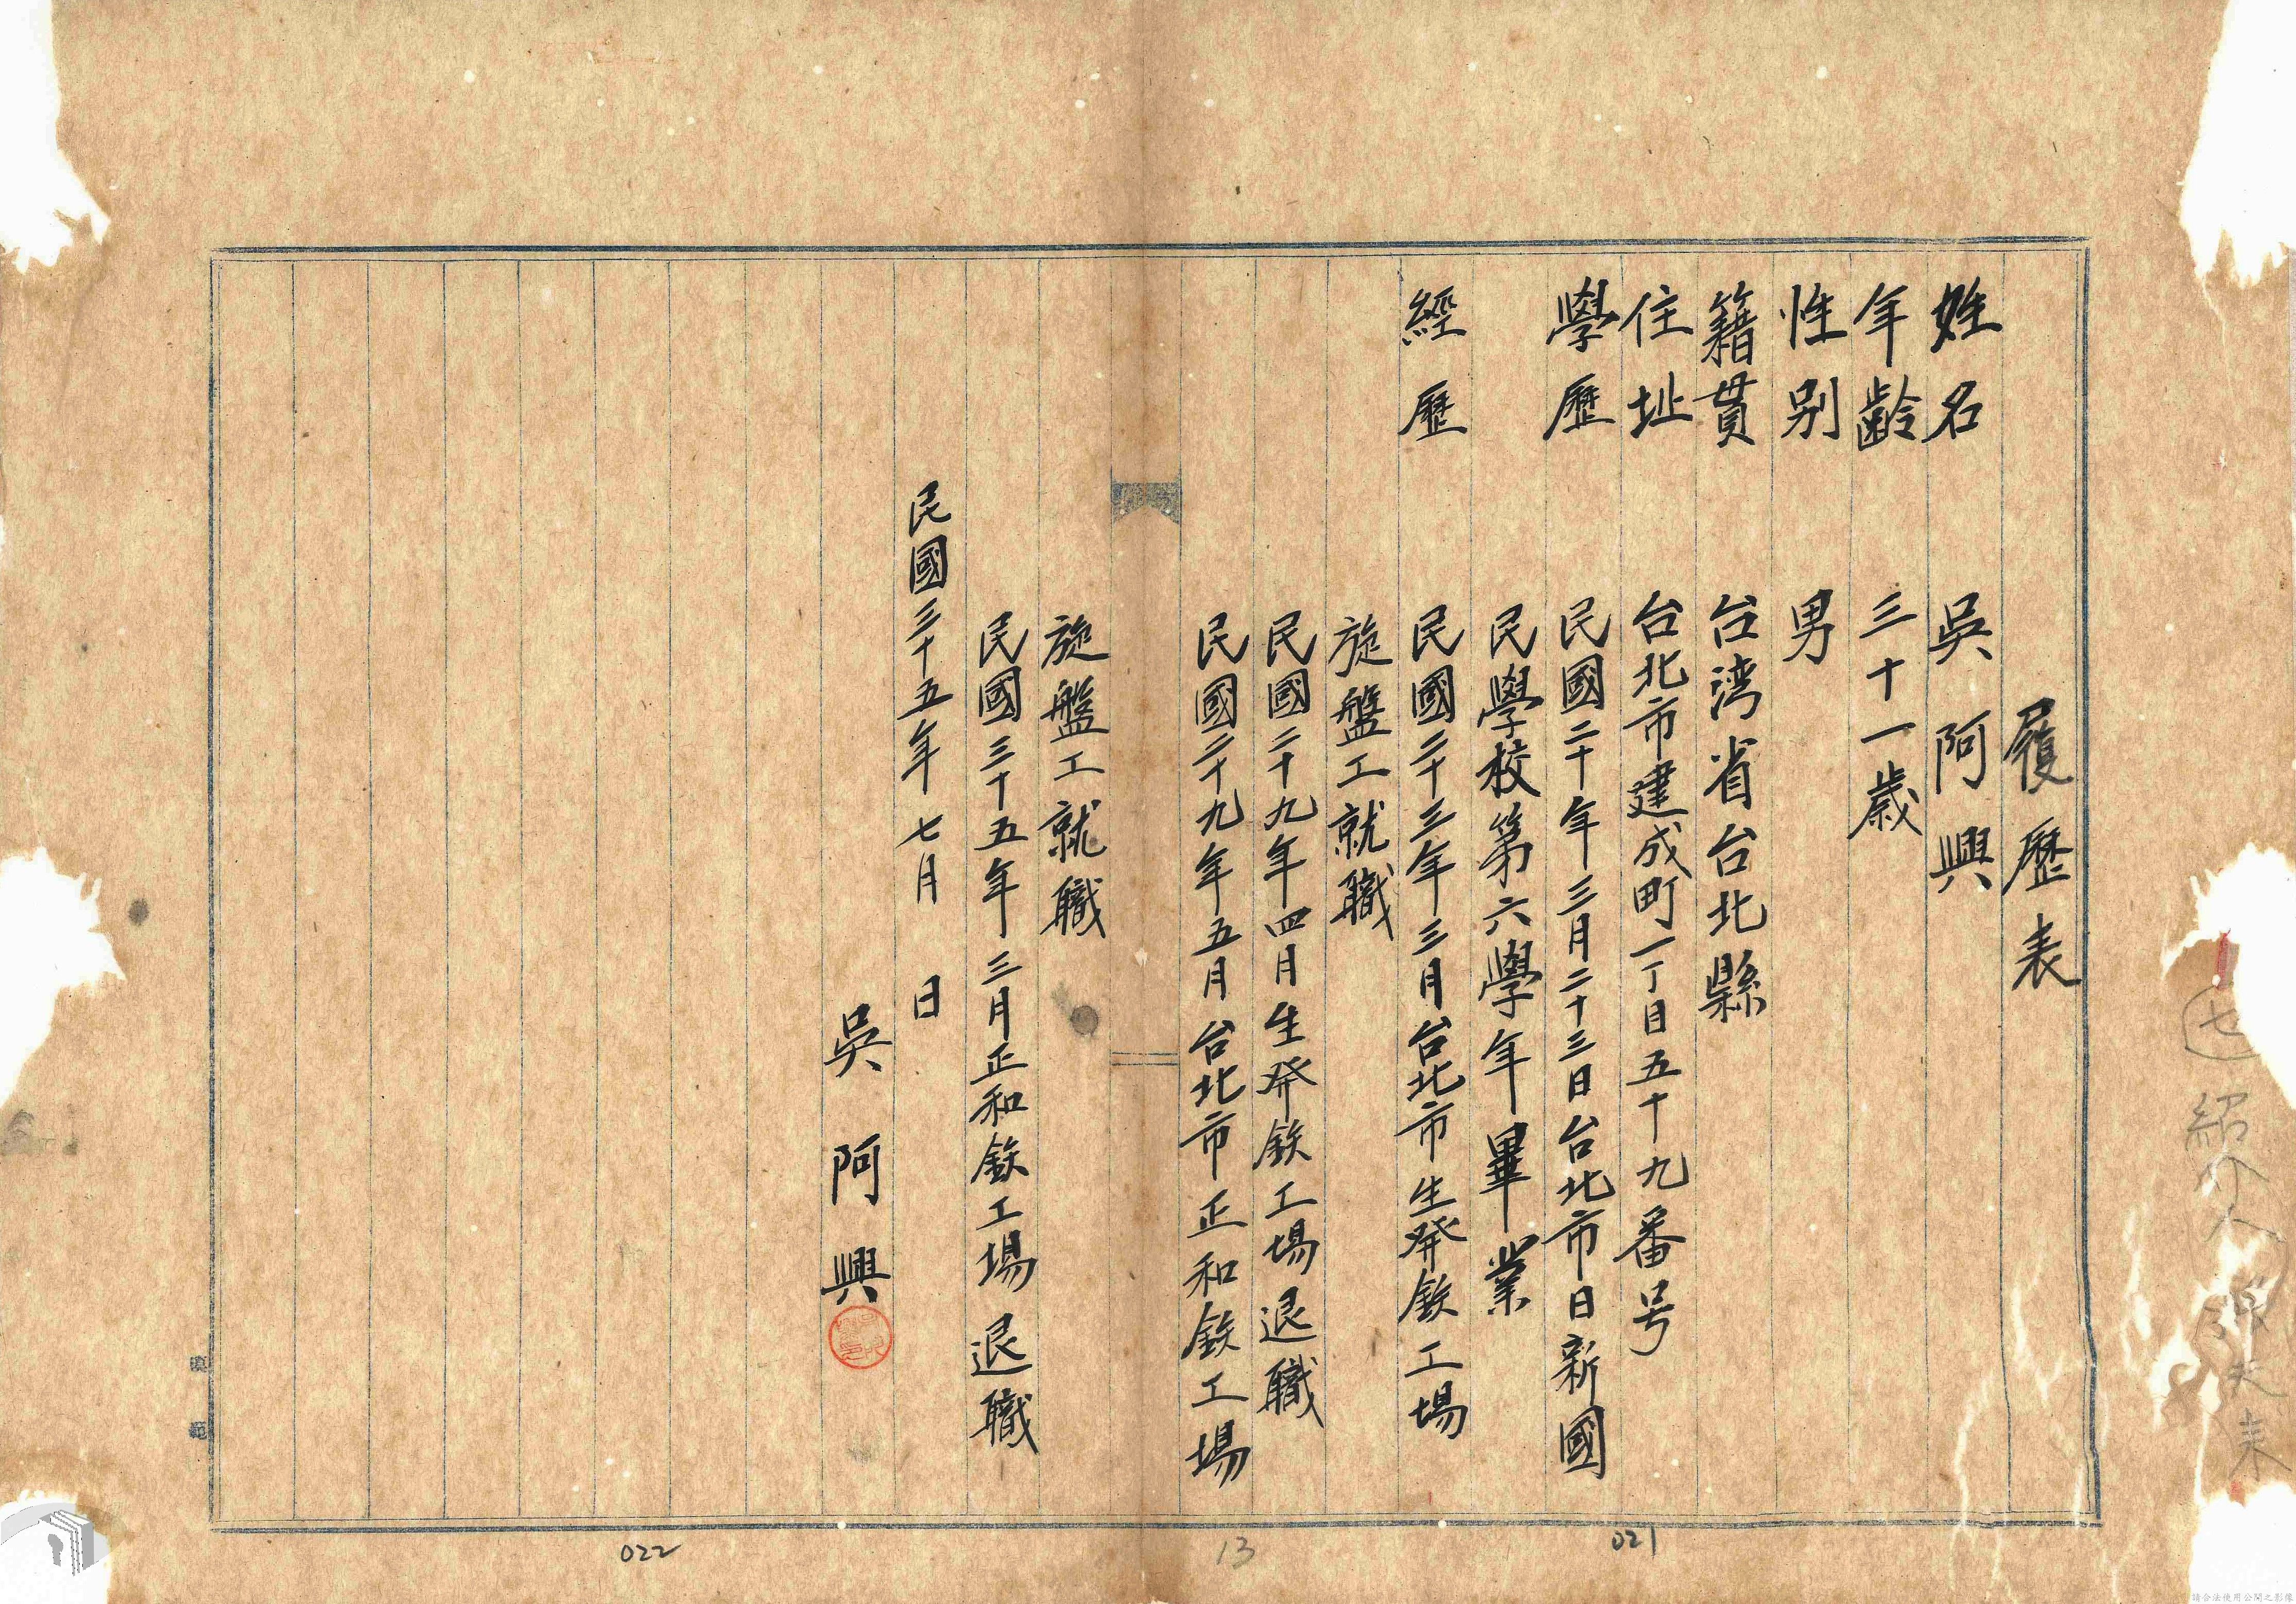 履歷表
姓名 吳阿興
年齡 三十一歲
性別 男
籍貫 台湾省台北縣
住址 台北市建成町一丁目五十九番号
學歷 民國二十年三月二十三日台北市日新國
民學校第六學年畢業
經歷 民國二十三年三月台北市生発鉄工場
旋盤工就職
民國二十九年四月生発鉄工場退職
民國二十九年五月台北市正和鉄工場
旋盤工就職
民國三十五年三月正和鉄工場退職
民國三十五年七月 日
吳阿興
七
紹介人
021
13
022
請合法使用公開之影像